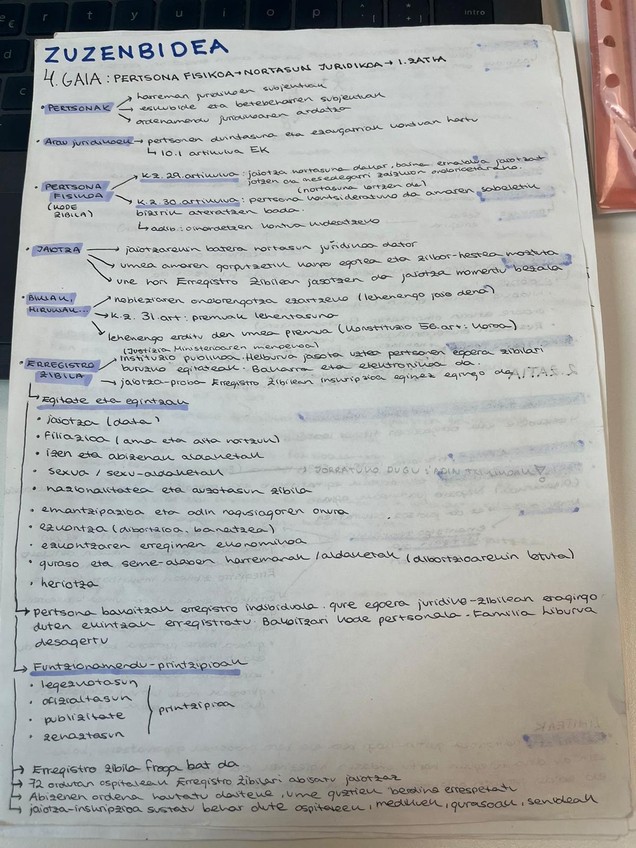 ZUZENBIDEA
4. GAIA: PERTSONA FISIKOA → NORTASUN JURIDIKOA → 1. ZATIA
• PERTSONAK → harreman juridikoen subjektuak
→ eskubide eta betebeharren subjektuak
→ ordenamendu juridikoaren ardatza
• Arau juridikoek → pertsonen duintasuna eta ezaugarriak kontuan hartu
↳ 10.1 artikulua EK
• PERTSONA FISIKOA (KODE ZIBILA)
→ K.Z. 29. artikulua: jaiotza nortasuna dakar, baina ernaldua jaiotzat
jotzen da mesedegarri zaizkion ondorioetarako.
(nortasuna lortzen du)
→ K.Z. 30. artikulua: pertsona kontsideratuko da amaren sabeletik
bizirik ateratzen bada.
↳ adib: oinordetzen kontua kudeatzeko
• JAIOTZA → jaiotzarekin batera nortasun juridikoa dator
→ umea amaren gorputzetik kanpo egotea eta zilbor-hestea moztuta
→ une hori Erregistro Zibilean jasotzen da jaiotza momentu bezala
• BIKIAK, HIRUKIAK... → nobleziaren ondorengotza ezartzeko (lehenengo jaio dena)
→ K.Z. 31. art: premuak lehentasuna
→ lehenengo erditu den umea premua (Konstituzio 56. art: Koroa)
(Justizia Ministerioaren menpekoa)
• ERREGISTRO ZIBILA → Instituzio publikoa. Helburua jasota uztea pertsonen egoera zibilari
buruzko egitateak. Bakarra eta elektronikoa da
→ jaiotza-proba Erregistro Zibilean inskripzioa eginez egingo da
↳ Egitate eta egintzak
• jaiotza (data)
• Filiazioa (ama eta aita nortzuk)
• izen eta abizenak aldaketak
• sexua / sexu-aldaketak
• nazionalitatea eta auzotasun zibila
• emantzipazioa eta adin nagusiagoren onura
• ezkontza (dibortzioa, banaitzea)
• ezkontzaren erregimen ekonomikoa
• guraso eta seme-alaben harremanak / aldaketak (dibortzioarekin lotuta)
• heriotza
→ pertsona bakoitzak erregistro indibiduala. gure egoera juridiko-zibilean eragingo
duten ekintzak erregistratu. Bakoitzari kode pertsonala. Familia liburua
desagertu
→ Funtzionamendu-printzipioak
• legezkotasun
• ofizialtasun
• publizitate
• zehaztasun
printzipioa
→ Erregistro zibila froga bat da
→ 72 ordutan ospitaleak Erregistro Zibilari abisatu jaiotzaz
→ Abizenen ordena hautatu daiteke, ume guztiek berdina errespetatu
→ jaiotza-inskripzioa sustatu behar dute ospitaleek, medikuek, gurasoak, senideak